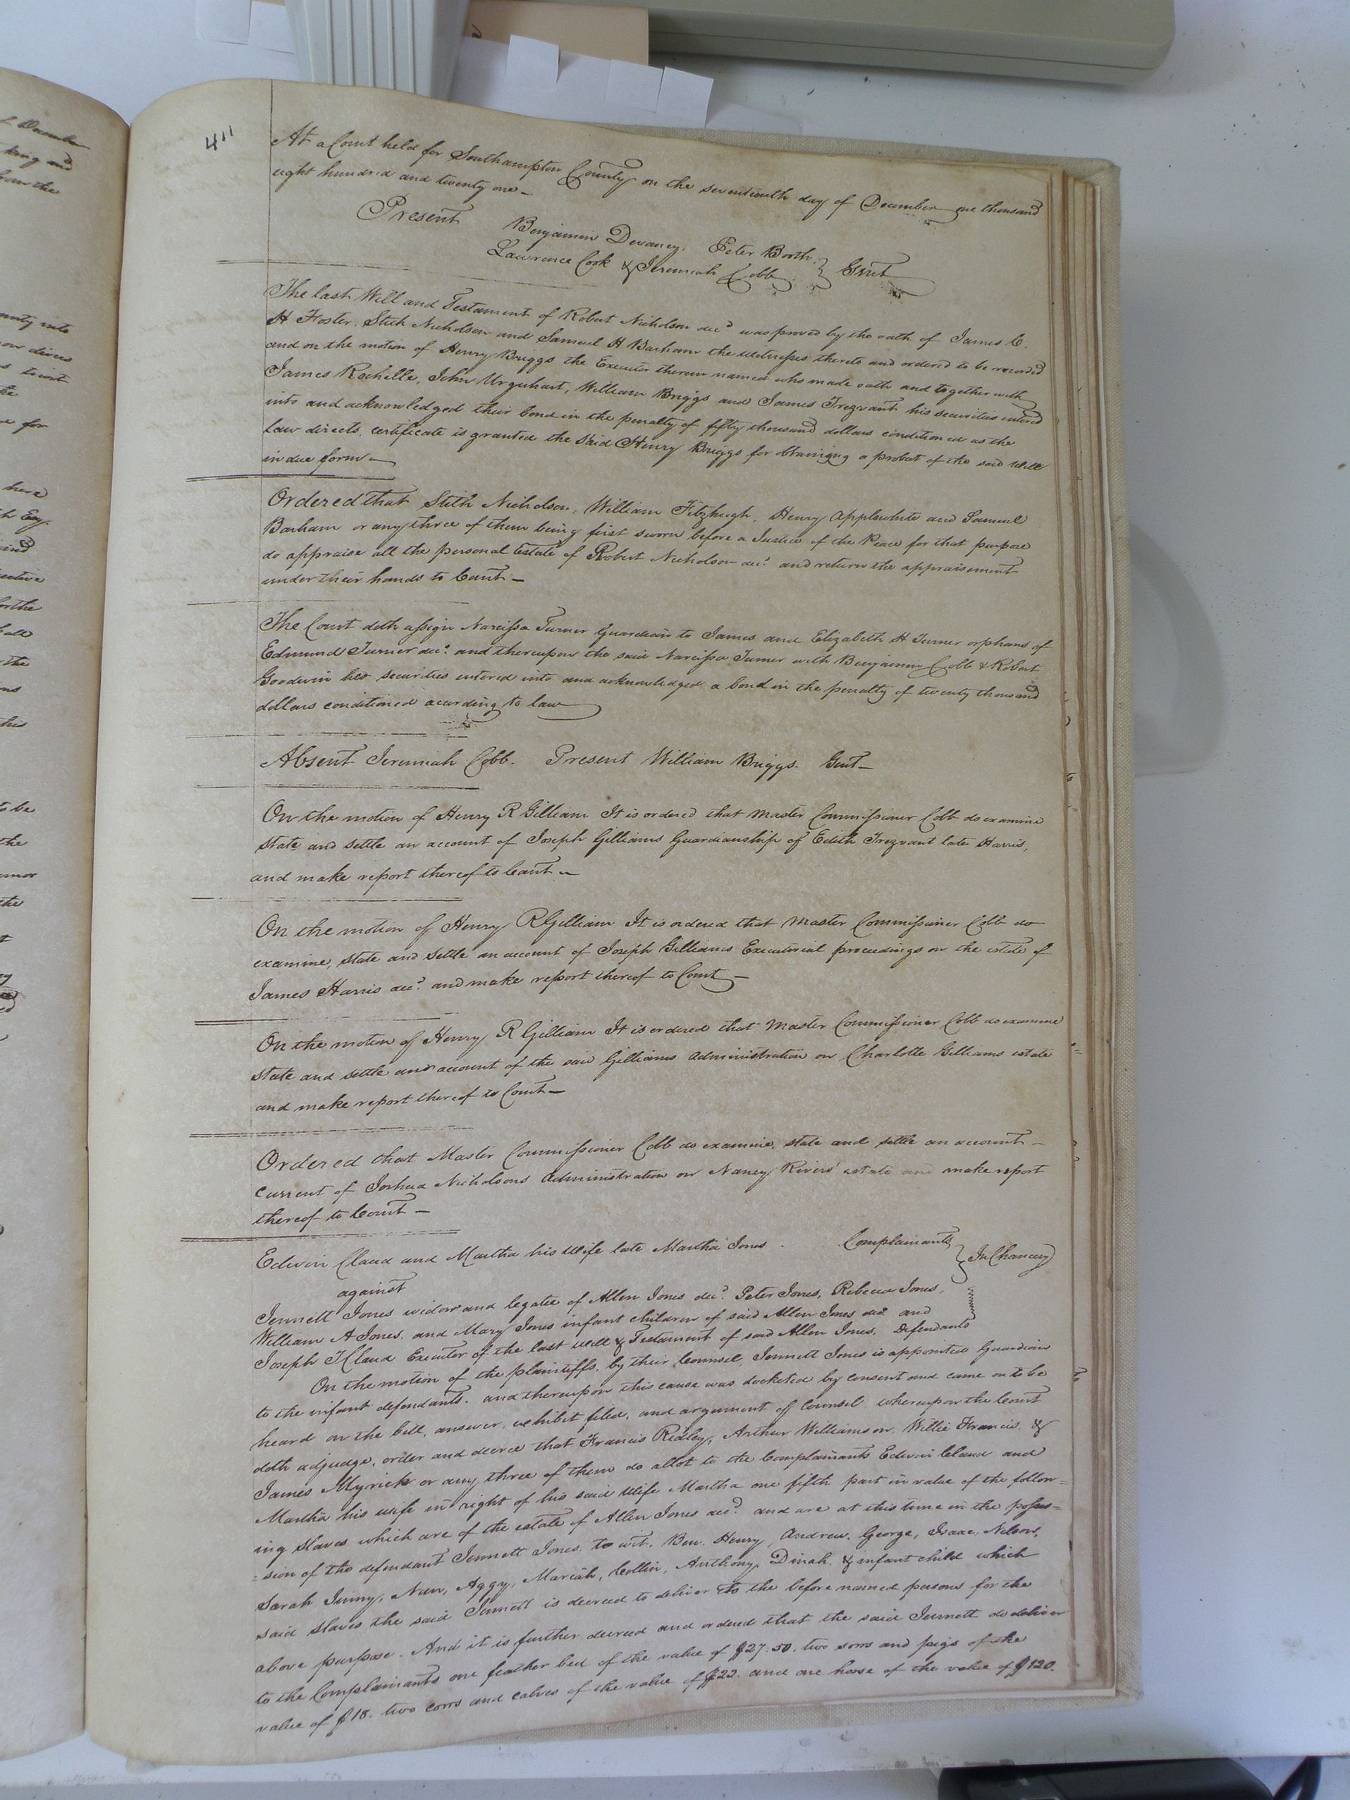 411
At a Court held for Southampton County on the seventeenth day of December one thousand
eight hundred and twenty one —
Present Benjamin Devaney, Peter Booth,
Lawrence Cook & Jeremiah Cobb } Gent
The last Will and Testament of Robert Nicholson decd was proved by the oath of James C.
H Foster, Stith Nicholson and Samuel H Barham the witnesses thereto and ordered to be recorded
and on the motion of Henry Briggs the Executor therein named who made oath and together with
James Rochelle, John Urquhart, William Briggs and James Trezvant his securities entered
into and acknowledged their bond in the penalty of fifty thousand dollars conditioned as the
law directs, certificate is granted the said Henry Briggs for obtaining a probat of the said will
in due form —
Ordered that Stith Nicholson, William Fitzhugh, Henry Applewhite and Samuel
Barham or any three of them being first sworn before a Justice of the Peace for that purpose
do appraise all the personal Estate of Robert Nicholson decd and return the appraisement
under their hands to Court —
The Court doth assign Narcissa Turner Guardian to James and Elizabeth H Turner orphans of
Edmund Turner decd and thereupon the said Narcissa Turner with Benjamin Cobb & Robert
Goodwin her securities entered into and acknowledged a bond in the penalty of twenty thousand
dollars conditioned according to law
Absent Jeremiah Cobb. Present William Briggs. Gent —
On the motion of Henry R Gilliam It is ordered that Master Commissioner Cobb do examine
state and settle an account of Joseph Gilliams Guardianship of Edith Trezvant late Harris,
and make report thereof to Court —
On the motion of Henry R Gilliam It is ordered that Master Commissioner Cobb do
examine, state and settle an account of Joseph Gilliams Executorial proceedings on the estate of
James Harris decd and make report thereof to Court —
On the motion of Henry R Gilliam It is ordered that Master Commissioner Cobb do examine
state and settle an account of the said Gilliams Administration on Charlotte Gilliams estate
and make report thereof to Court —
Ordered that Master Commissioner Cobb do examine, state and settle an account —
current of Joshua Nicholsons Administration on Nancy Rivers' estate and make report
thereof to Court —
Edwin Claud and Martha his wife late Martha Jones . Complainants } In Chancery
against
Jennett Jones widow and legatee of Allen Jones decd. Peter Jones, Rebecca Jones,
William A Jones, and Mary Jones infant children of said Allen Jones decd and
Joseph T Claud Executor of the last will & Testament of said Allen Jones. Defendants
On the motion of the plaintiffs, by their Counsel Jennett Jones is appointed Guardian
to the infant defendants. and thereupon this cause was docketed by consent and came on to be
heard on the bill, answer, exhibit filed, and argument of Counsel whereupon the Court
doth adjudge, order and decree that Francis Ridley, Arthur Williamson, Willie Francis, &
James Myrick or any three of them do allot to the Complainants Edwin Claud and
Martha his wife in right of his said wife Martha one fifth part in value of the follow=
ing slaves which are of the estate of Allen Jones decd. and are at this time in the posses=
=sion of the defendant Jennett Jones, to wit. Ben, Henry, Andrew, George, Isaac, Nelson,
Sarah, Jinny, Nan, Aggy, Mariah, Collin, Anthony, Dinah & infant child which
said slaves the said Jennett is decreed to deliver to the before named persons for the
above purpose. And it is further decreed and ordered that the said Jennett do deliver
to the Complainants one feather bed of the value of $27.50. two sows and pigs of the
value of $18. two cows and calves of the value of $22. and one horse of the value of $120.